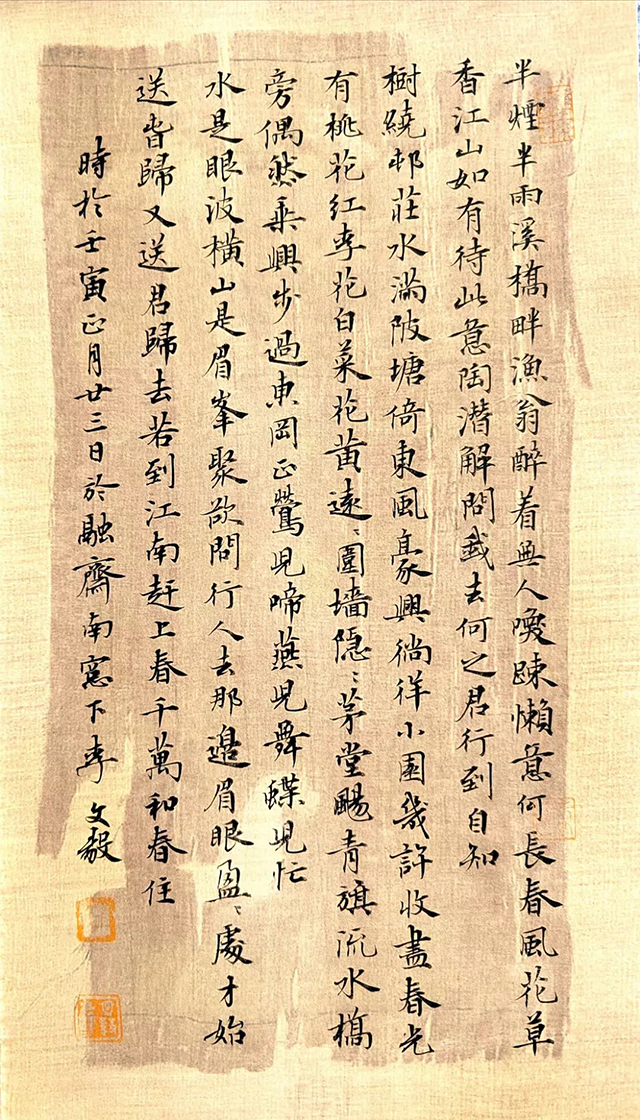 半煙半雨溪橋畔漁翁醉着無人喚踈懶意何長春風花草
香江山如有待此意陶潛解問我去何之君行到自知
樹繞邨莊水滿陂塘倚東風豪興徜徉小園幾許收盡春光
有桃花紅李花白菜花黃遠〻圍墻隱〻茅堂颺青旗流水橋
旁偶然乘興步過東岡正鶯兒啼燕兒舞蝶兒忙
水是眼波橫山是眉峯聚欲問行人去那邊眉眼盈〻處才始
送旾歸又送君歸去若到江南趕上春千萬和春住
時於壬寅正月廿三日於融齋南窻下李文毅